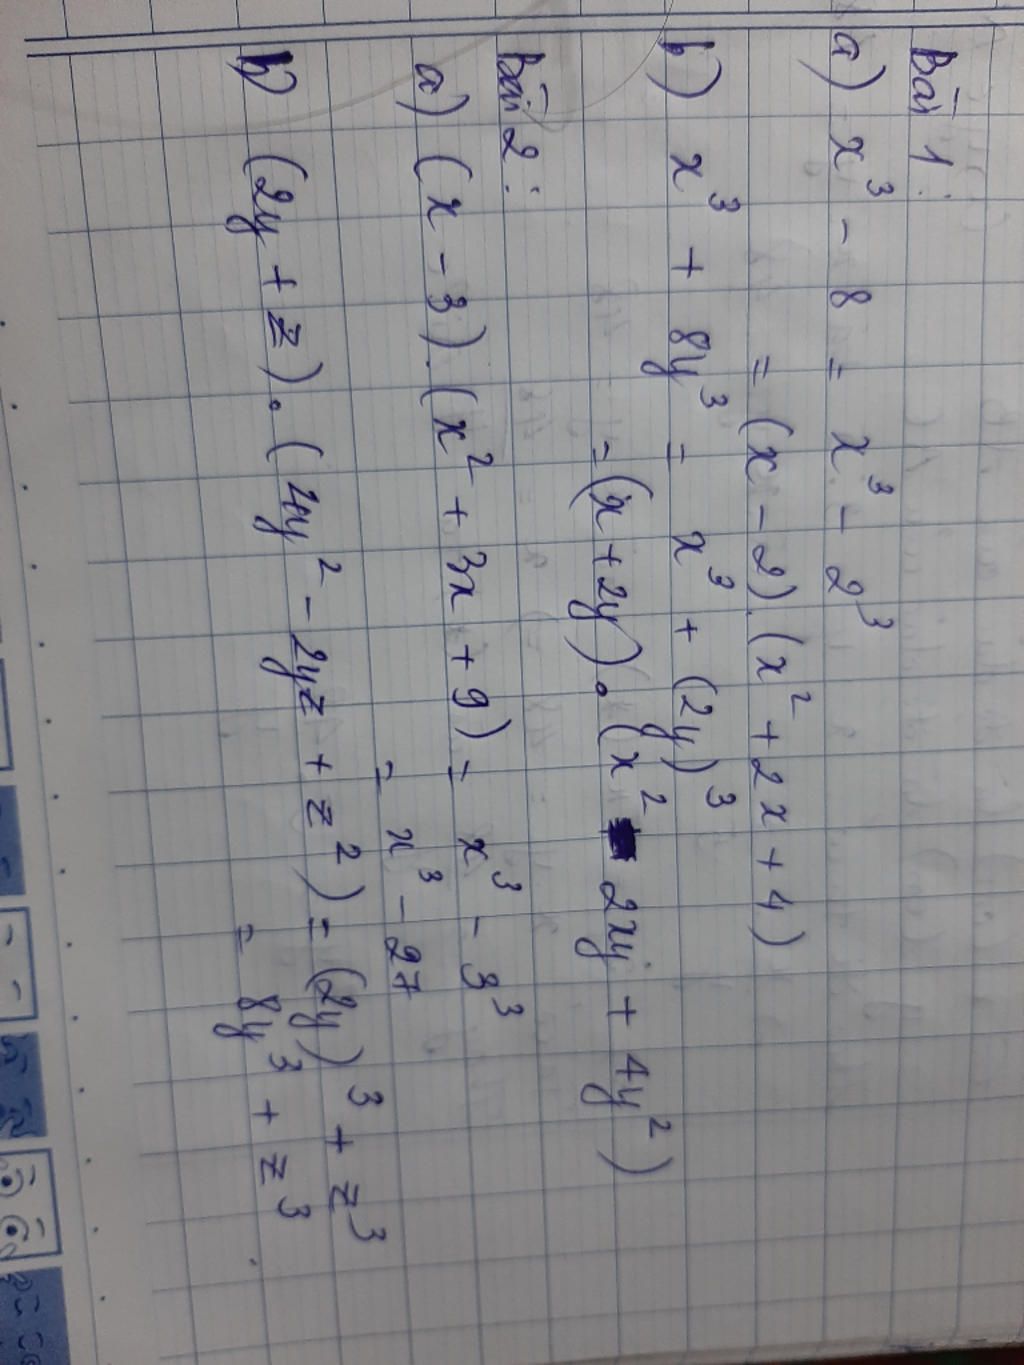 Bài 1:
a) x³ - 8 = x³ - 2³
= (x - 2).(x² + 2x + 4)
b) x³ + 8y³ = x³ + (2y)³
= (x + 2y).(x² 2xy + 4y²)
Bài 2:
a) (x - 3).(x² + 3x + 9) = x³ - 3³
= x³ - 27
b) (2y + z).(4y² - 2yz + z²) = (2y)³ + z³
= 8y³ + z³